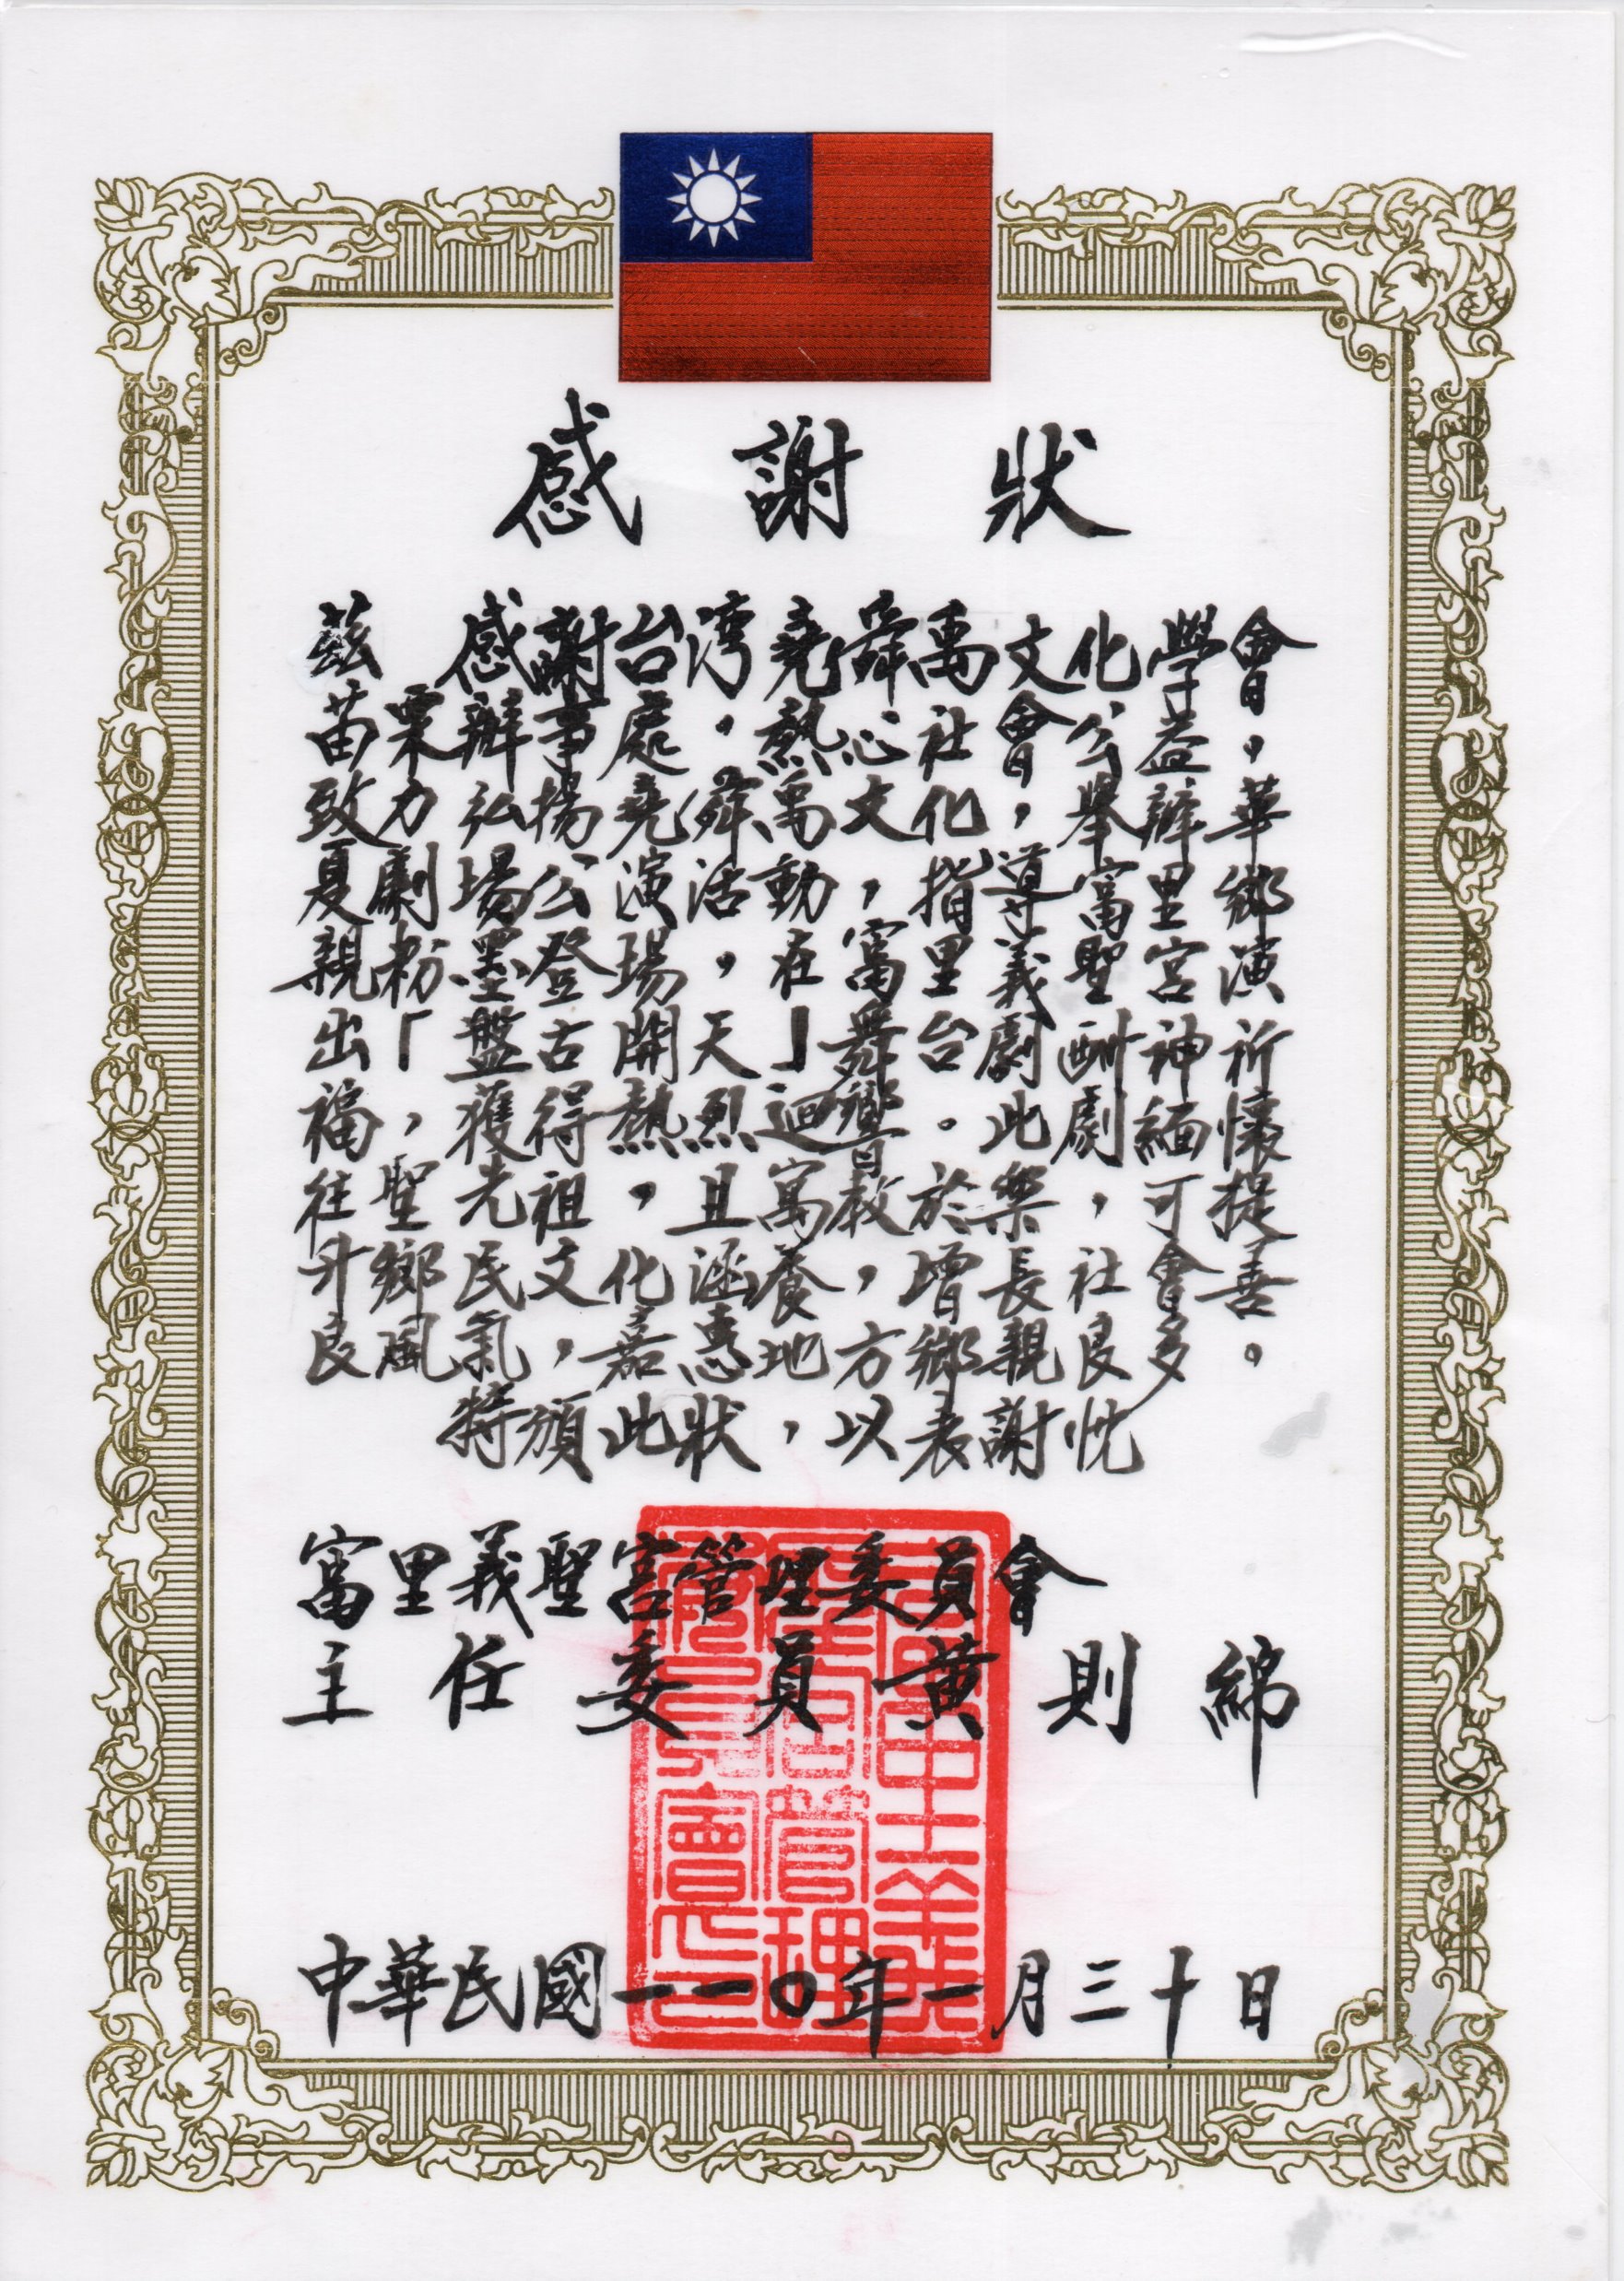 感謝狀
茲 感謝台湾堯舜禹文化學會
苗栗辦事處。熱心社會公益，
致力弘揚堯舜禹文化，舉辦華
夏劇場公演活動，指導富里鄉
親粉墨登場，在富里義聖宮演
出「盤古開天」舞台劇酬神祈
福，獲得熱烈迴響。此劇緬懷
往聖先祖，且寓教於樂，可提
升鄉民文化涵養，增長社會善
良風氣，嘉惠地方鄉親良多。
特頒此狀，以表謝忱
富里義聖宮管理委員會
主任委員黃則綿
中華民國一一〇年一月三十日